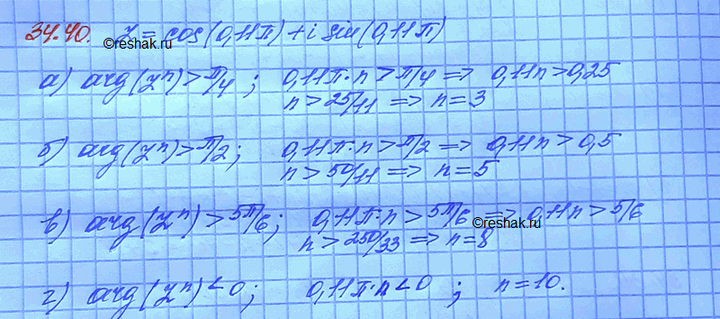 34.40. z = cos(0,11π) + i sin(0,11π)
©reshak.ru
а) arg(zⁿ) > π/4 ; 0,11π·n > π/4 => 0,11n > 0,25
n > 25/11 => n = 3
б) arg(zⁿ) > π/2; 0,11π·n > π/2 => 0,11n > 0,5
n > 50/11 => n = 5
в) arg(zⁿ) > 5π/6; 0,11π·n > 5π/6 => 0,11n > 5/6
©reshak.ru
n > 250/33 => n = 8
г) arg(zⁿ) < 0; 0,11π·n < 0 ; n = 10.